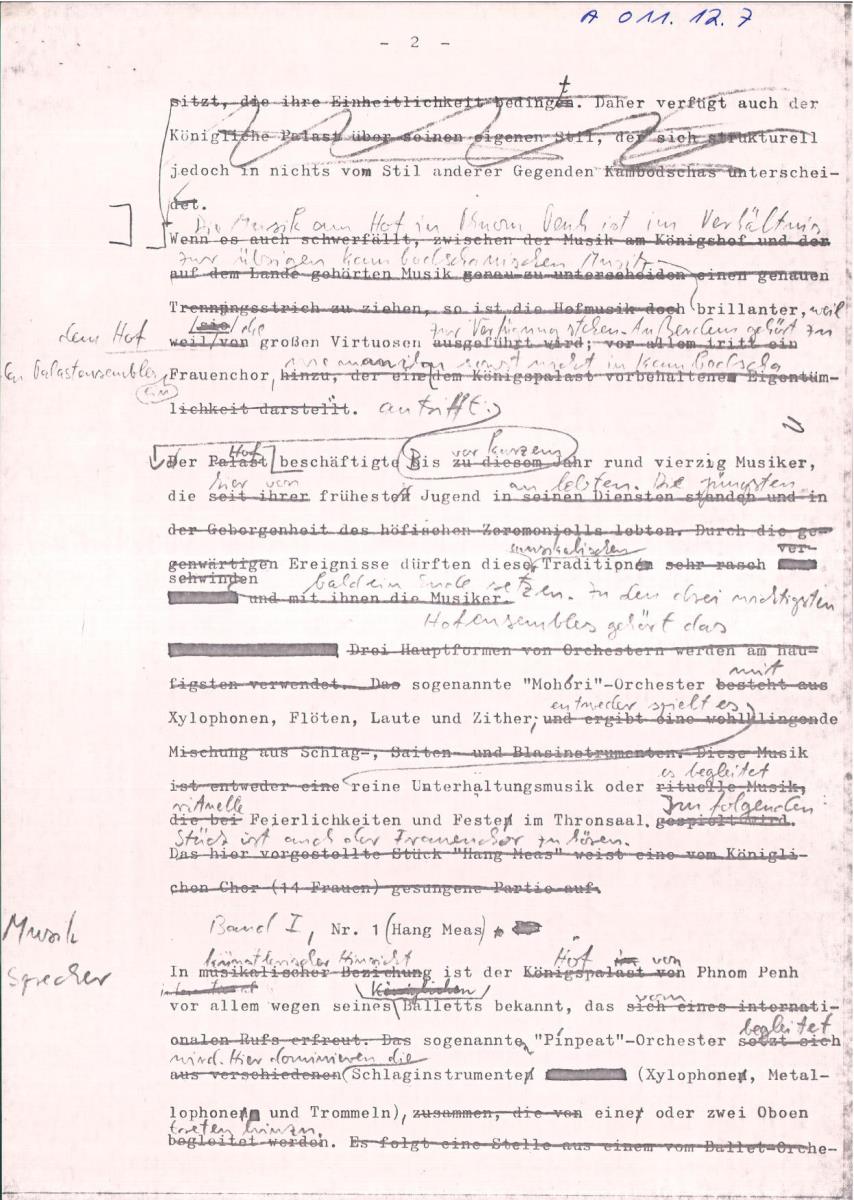 A 011.12.7
- 2 -
sitzt, die ihre Einheitlichkeit bedingen. Daher verfügt auch der
t
Königliche Palast über seinen eigenen Stil, der sich strukturell
jedoch in nichts vom Stil anderer Gegenden Kambodschas unterschei-
det.
Die Musik am Hof in Phnom Penh ist im Verhältnis
Wenn es auch schwerfällt, zwischen der Musik am Königshof und der
zur übrigen kambodschanischen Musik
auf dem Lande gehörten Musik genau zu unterscheiden einen genauen
Trennungsstrich zu ziehen, so ist die Hofmusik doch brillanter, weil
dem Hof (sie) die zur Verfügung stehen. Außerdem gehört zu
weil/von großen Virtuosen ausgeführt wird; vor allem tritt ein
den Palastensembles ein wie man ihn sonst nicht in Kambodscha
Frauenchor, hinzu, der eine dem Königspalast vorbehaltene Eigentüm-
lichkeit darstellt. antrifft.
Hof vor kurzem
Der Palast beschäftigte Bis zu diesem Jahr rund vierzig Musiker,
hier von an lebten. Die jüngsten
die seit ihrer frühesten Jugend in seinen Diensten standen und in
der Geborgenheit des höfischen Zeremoniells lebten. Durch die ge-
musikalischen ver-
genwärtigen Ereignisse dürften diese Tradition sehr rasch
schwinden
bald ein Ende setzen. Zu den drei wichtigsten
und mit ihnen die Musiker.
Hofensembles gehört das
Drei Hauptformen von Orchestern werden am häu-
mit
figsten verwendet. Das sogenannte "Mohóri"-Orchester besteht aus
entweder spielt es
Xylophonen, Flöten, Laute und Zither; und ergibt eine wohlklingende
Mischung aus Schlag-, Saiten- und Blasinstrumenten. Diese Musik
es begleitet
ist entweder eine reine Unterhaltungsmusik oder rituelle Musik,
rituelle Im folgenden
die bei Feierlichkeiten und Festen im Thronsaal. gespielt wird.
Stück ist auch der Frauenchor zu hören.
Das hier vorgestellte Stück "Hang Meas" weist eine vom Königli-
chen Chor (14 Frauen) gesungene Partie auf.
Musik Band I, Nr. 1 (Hang Meas)
Sprecher künstlerischer Hinsicht Hof in von
In musikalischer Beziehung ist der Königspalast von Phnom Penh
Königlichen
vor allem wegen seines Balletts bekannt, das sich eines internati-
vom
begleitet
onalen Rufs erfreut. Das sogenannten "Pínpeat"-Orchester setzt sich
wird. Hier dominieren die
aus verschiedenen Schlaginstrumenten (Xylophonen, Metal-
lophonen und Trommeln), zusammen, die von einer oder zwei Oboen
treten hinzu.
begleitet werden. Es folgt eine Stelle aus einem vom Ballet-Orche-